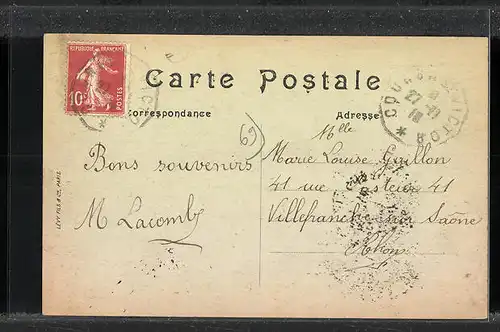 REPUBLIQUE FRANÇAISE
10c
POSTES
Carte Postale
Correspondance
Adresse
COURS
27
69
Mlle
Bons souvenirs
M Lacomb
Marie Louise Guillon
41 rue 41
Villefranche sur Saône
Rhône
LEVY FILS & Cie, PARIS